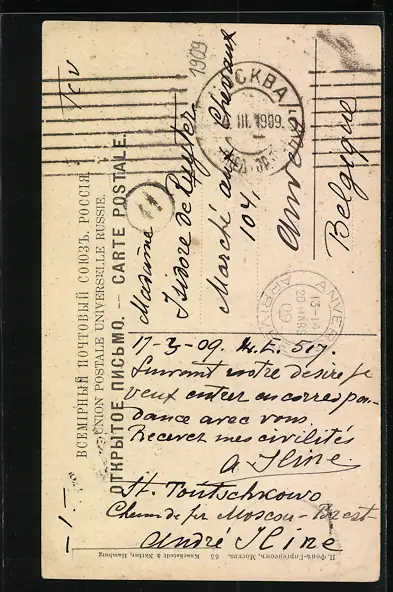 ВСЕМІРНЫЙ ПОЧТОВЫЙ СОЮЗЪ. РОССІЯ.
UNION POSTALE UNIVERSELLE RUSSIE.
ОТКРЫТОЕ ПИСЬМО. — CARTE POSTALE.
1909
Madame
Isidore de
Marché aux Chevaux
104
Anvers
Belgique
МОСКВА
III. 1909.
ANVERS
13-14
20 MARS
09
ARRIVÉE
17-3-09. N. E. 517.
Suivant votre désire je
veux entrer en correspon-
dance avec vous.
Recevez mes civilités
A. Iline.
St. Toutschkowo
Chemin de fer Moscou-Brest
André Iline
П. Фонъ-Гиргенсонъ, Москва. 65 Knackstedt & Näther, Hamburg